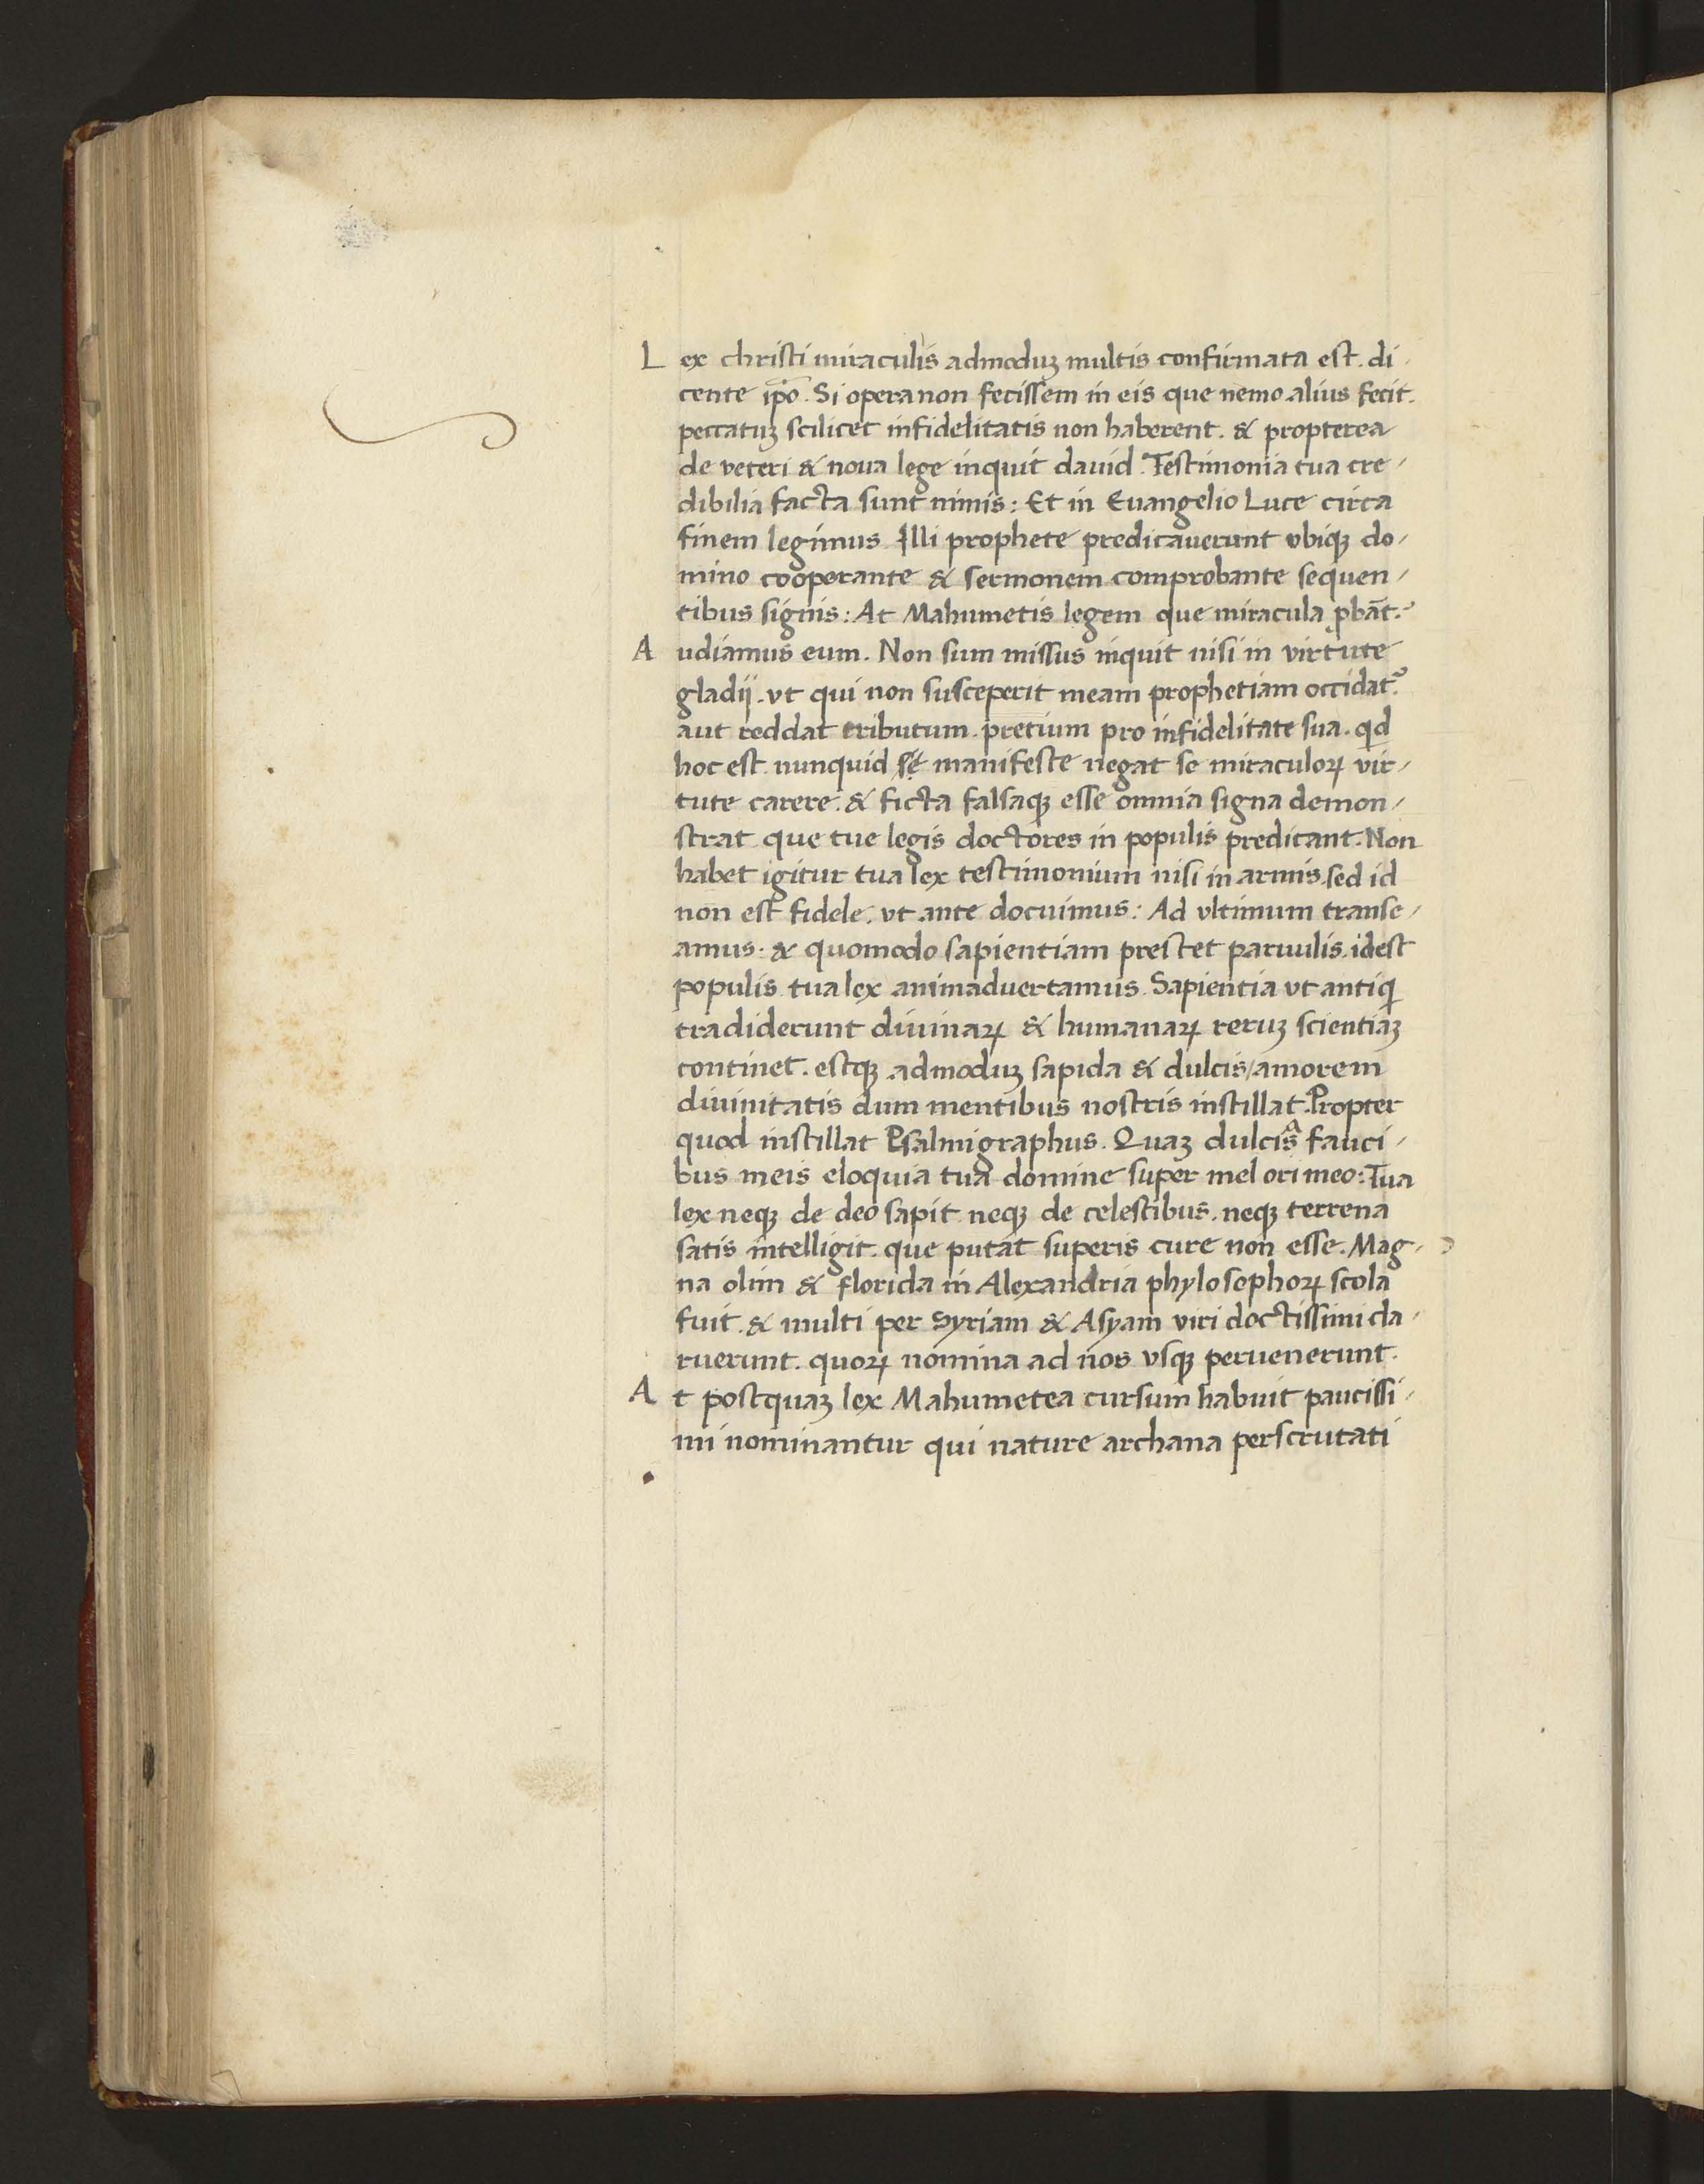 Lex christi miraculis admoduꝫ multis confirmata est. di
cente ip̄o. Si opera non fecissem in eis que nemo alius fecit.
peccatuꝫ scilicet infidelitatis non haberent. & propterea
de veteri & noua lege inquit dauid. Testimonia tua cre/
dibilia facta sunt nimis: Et in Euangelio Luce circa
finem legimus Illi prophete predicauerunt vbiqꝫ do/
mino cooperante & sermonem comprobante sequen/
tibus signis: At Mahumetis legem que miracula ꝓbāt.?
Audiamus eum. Non sum missus inquit nisi in virtute
gladij. vt qui non susceperit meam prophetiam occidat?
aut reddat tributum. pretium pro infidelitate sua. qd
hoc est nunquid se manifeste negat se miraculoꝝ vir/
tute carere. & ficta falsaqꝫ esse omnia signa demon/
strat que tue legis doctores in populis predicant. Non
habet igitur tua lex testimonium nisi in armis. sed id
non est fidele. vt ante docuimus: Ad vltimum transe/
amus. & quomodo sapientiam prestet paruulis. idest
populis tua lex animaduertamus. Sapientia vt antiqi
tradiderunt diuinaꝝ & humanaꝝ reruꝫ scientiaꝫ
continet. estqꝫ admoduꝫ sapida & dulcis/amorem
diuinitatis dum mentibus nostris instillat. Propter
quod instillat Psalmigraphus. Quaꝫ dulcisa fauci/
bus meis eloquia tua domine super mel ori meo: Tua
lex neqꝫ de deo sapit neqꝫ de celestibus. neqꝫ terrena
satis intelligit. que putat superis cure non esse. Mag/
na olim & florida in Alexandria phylosophoꝝ scola
fuit. & multi per Syriam & Asyam viri doctissimi cla/
ruerunt. quoꝝ nomina ad nos vsqꝫ peruenerunt.
At postquaꝫ lex Mahumetea cursum habuit paucissi/
mi nominantur qui nature archana perscrutati